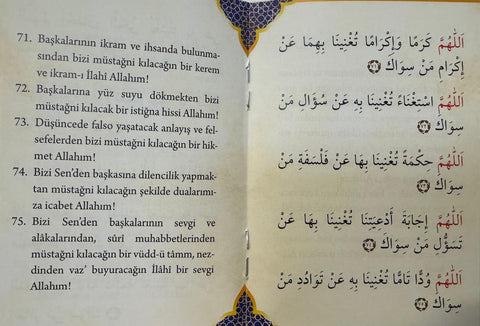 71. Başkalarının ikram ve ihsanda bulunma-
sından bizi müstağni kılacağın bir kerem
ve ikram-ı İlahî Allahım!
72. Başkalarına yüz suyu dökmekten bizi
müstağni kılacak bir istiğna hissi Allahım!
73. Düşüncede falso yaşatacak anlayış ve fel-
sefelerden bizi müstağni kılacağın bir hik-
met Allahım!
74. Bizi Sen'den başkasına dilencilik yapmak-
tan müstağni kılacağın şekilde dualarımı-
za icabet Allahım!
75. Bizi Sen'den başkalarının sevgi ve
alâkalarından, sûrî muhabbetlerinden
müstağni kılacağın bir vüdd-ü tâmm, nez-
dinden vaz' buyuracağın İlâhî bir sevgi
Allahım!
اَللّٰهُمَّ كَرَمًا وَإِكْرَامًا تُغْنِينَا بِهِمَا عَنْ
إِكْرَامِ مَنْ سِوَاكَ ﴿٧١﴾
اَللّٰهُمَّ اسْتِغْنَاءً تُغْنِينَا بِهِ عَنْ سُؤَالِ مَنْ
سِوَاكَ ﴿٧٢﴾
اَللّٰهُمَّ حِكْمَةً تُغْنِينَا بِهَا عَنْ فَلْسَفَةِ مَنْ
سِوَاكَ ﴿٧٣﴾
اَللّٰهُمَّ إِجَابَةَ أَدْعِيَتِنَا تُغْنِينَا بِهَا عَنْ
تَسَؤُّلِ مَنْ سِوَاكَ ﴿٧٤﴾
اَللّٰهُمَّ وُدًّا تَامًّا تُغْنِينَا بِهِ عَنْ تَوَادُدِ مَنْ
سِوَاكَ ﴿٧٥﴾